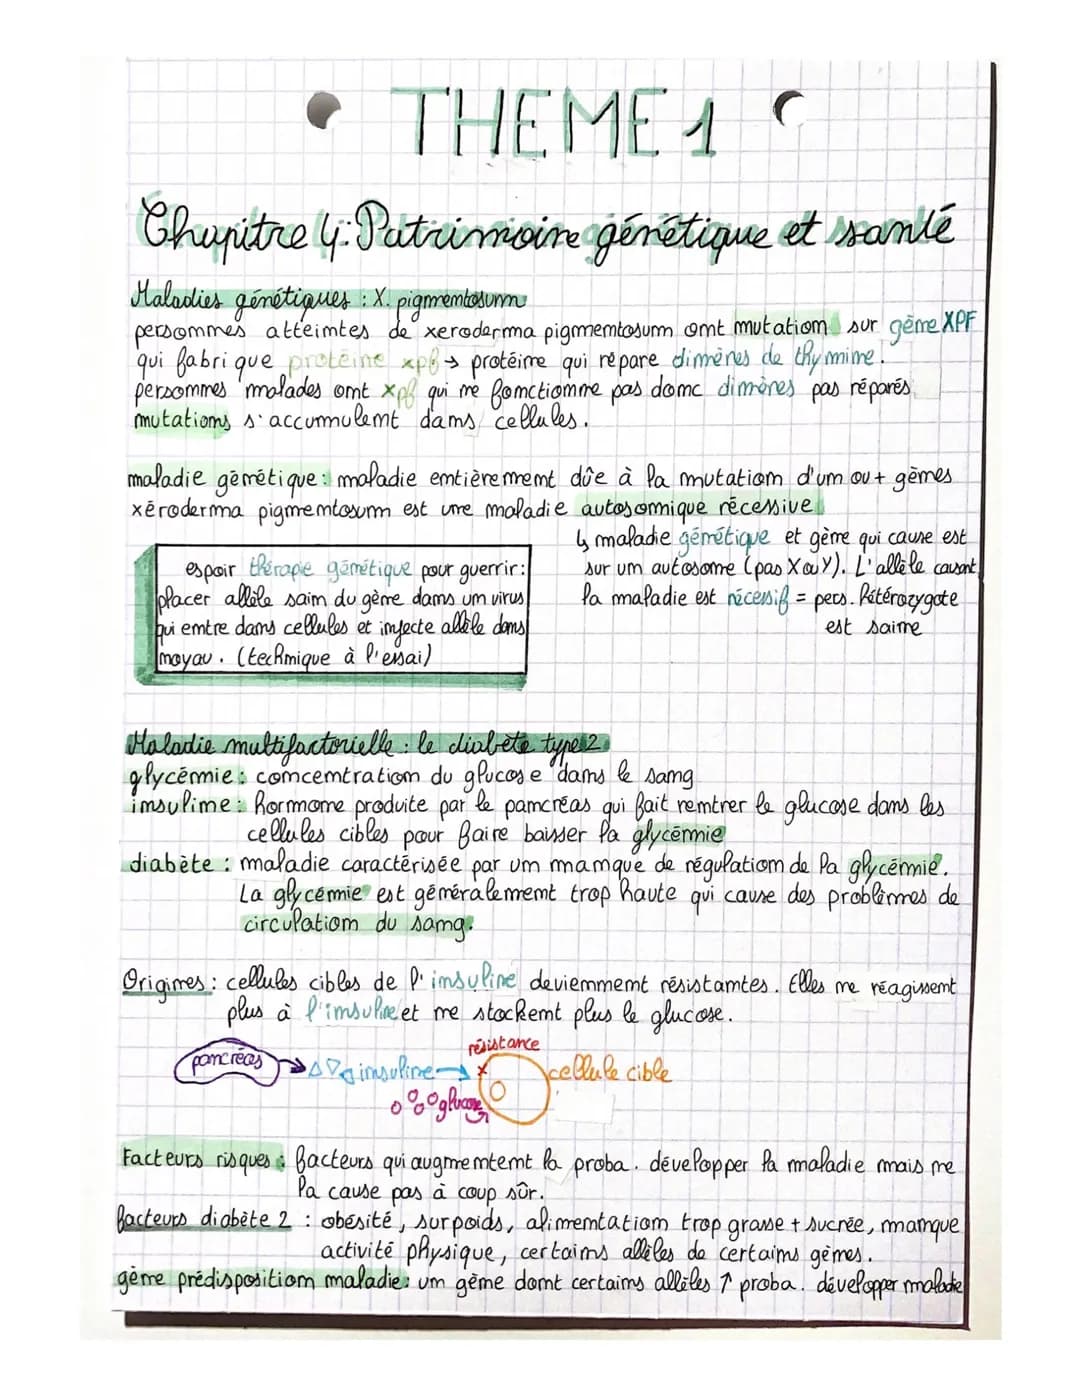 THEME 1
Chapitre 4: Patrimoine génétique et santé
Maladies génétiques : X. pigmentosum
personnes atteintes de xeroderma pigmentosum ont mutation sur gène XPF
qui fabrique protéine xpf → protéine qui répare dimères de thymine.
personnes malades ont xpf qui ne fonctionne pas donc dimères pas réparés
mutations s'accumulent dans cellules.
maladie génétique : maladie entièrement dûe à la mutation d'un ou + gènes
xéroderma pigmentosum est une maladie autosomique récessive
↳ maladie génétique et gène qui cause est
sur un autosome (pas X ou Y). L'allèle causant
la maladie est récessif = pers. hétérozygote
est saine
espoir thérapie génétique pour guerrir :
placer allèle sain du gène dans um virus
qui entre dans cellules et injecte allèle dans
noyau. (technique à l'essai)
Maladie multifactorielle : le diabète type 2
glycémie : concentration du glucose dans le sang
insuline : hormone produite par le pancréas qui fait rentrer le glucose dans les
cellules cibles pour faire baisser la glycémie
diabète : maladie caractérisée par un manque de régulation de la glycémie.
La glycémie est généralement trop haute qui cause des problèmes de
circulation du sang.
Origines : cellules cibles de l'insuline deviennent résistantes. Elles ne réagissent
plus à l'insuline et ne stockent plus le glucose.
résistance
pancréas → insuline → x cellule cible
glucose
Facteurs risques : facteurs qui augmentent la proba. développer la maladie mais ne
la cause pas à coup sûr.
facteurs diabète 2 : obésité, surpoids, alimentation trop grasse + sucrée, manque
activité physique, certains allèles de certains gènes.
gène prédisposition maladie : un gène dont certains allèles ↑ proba. développer maladie